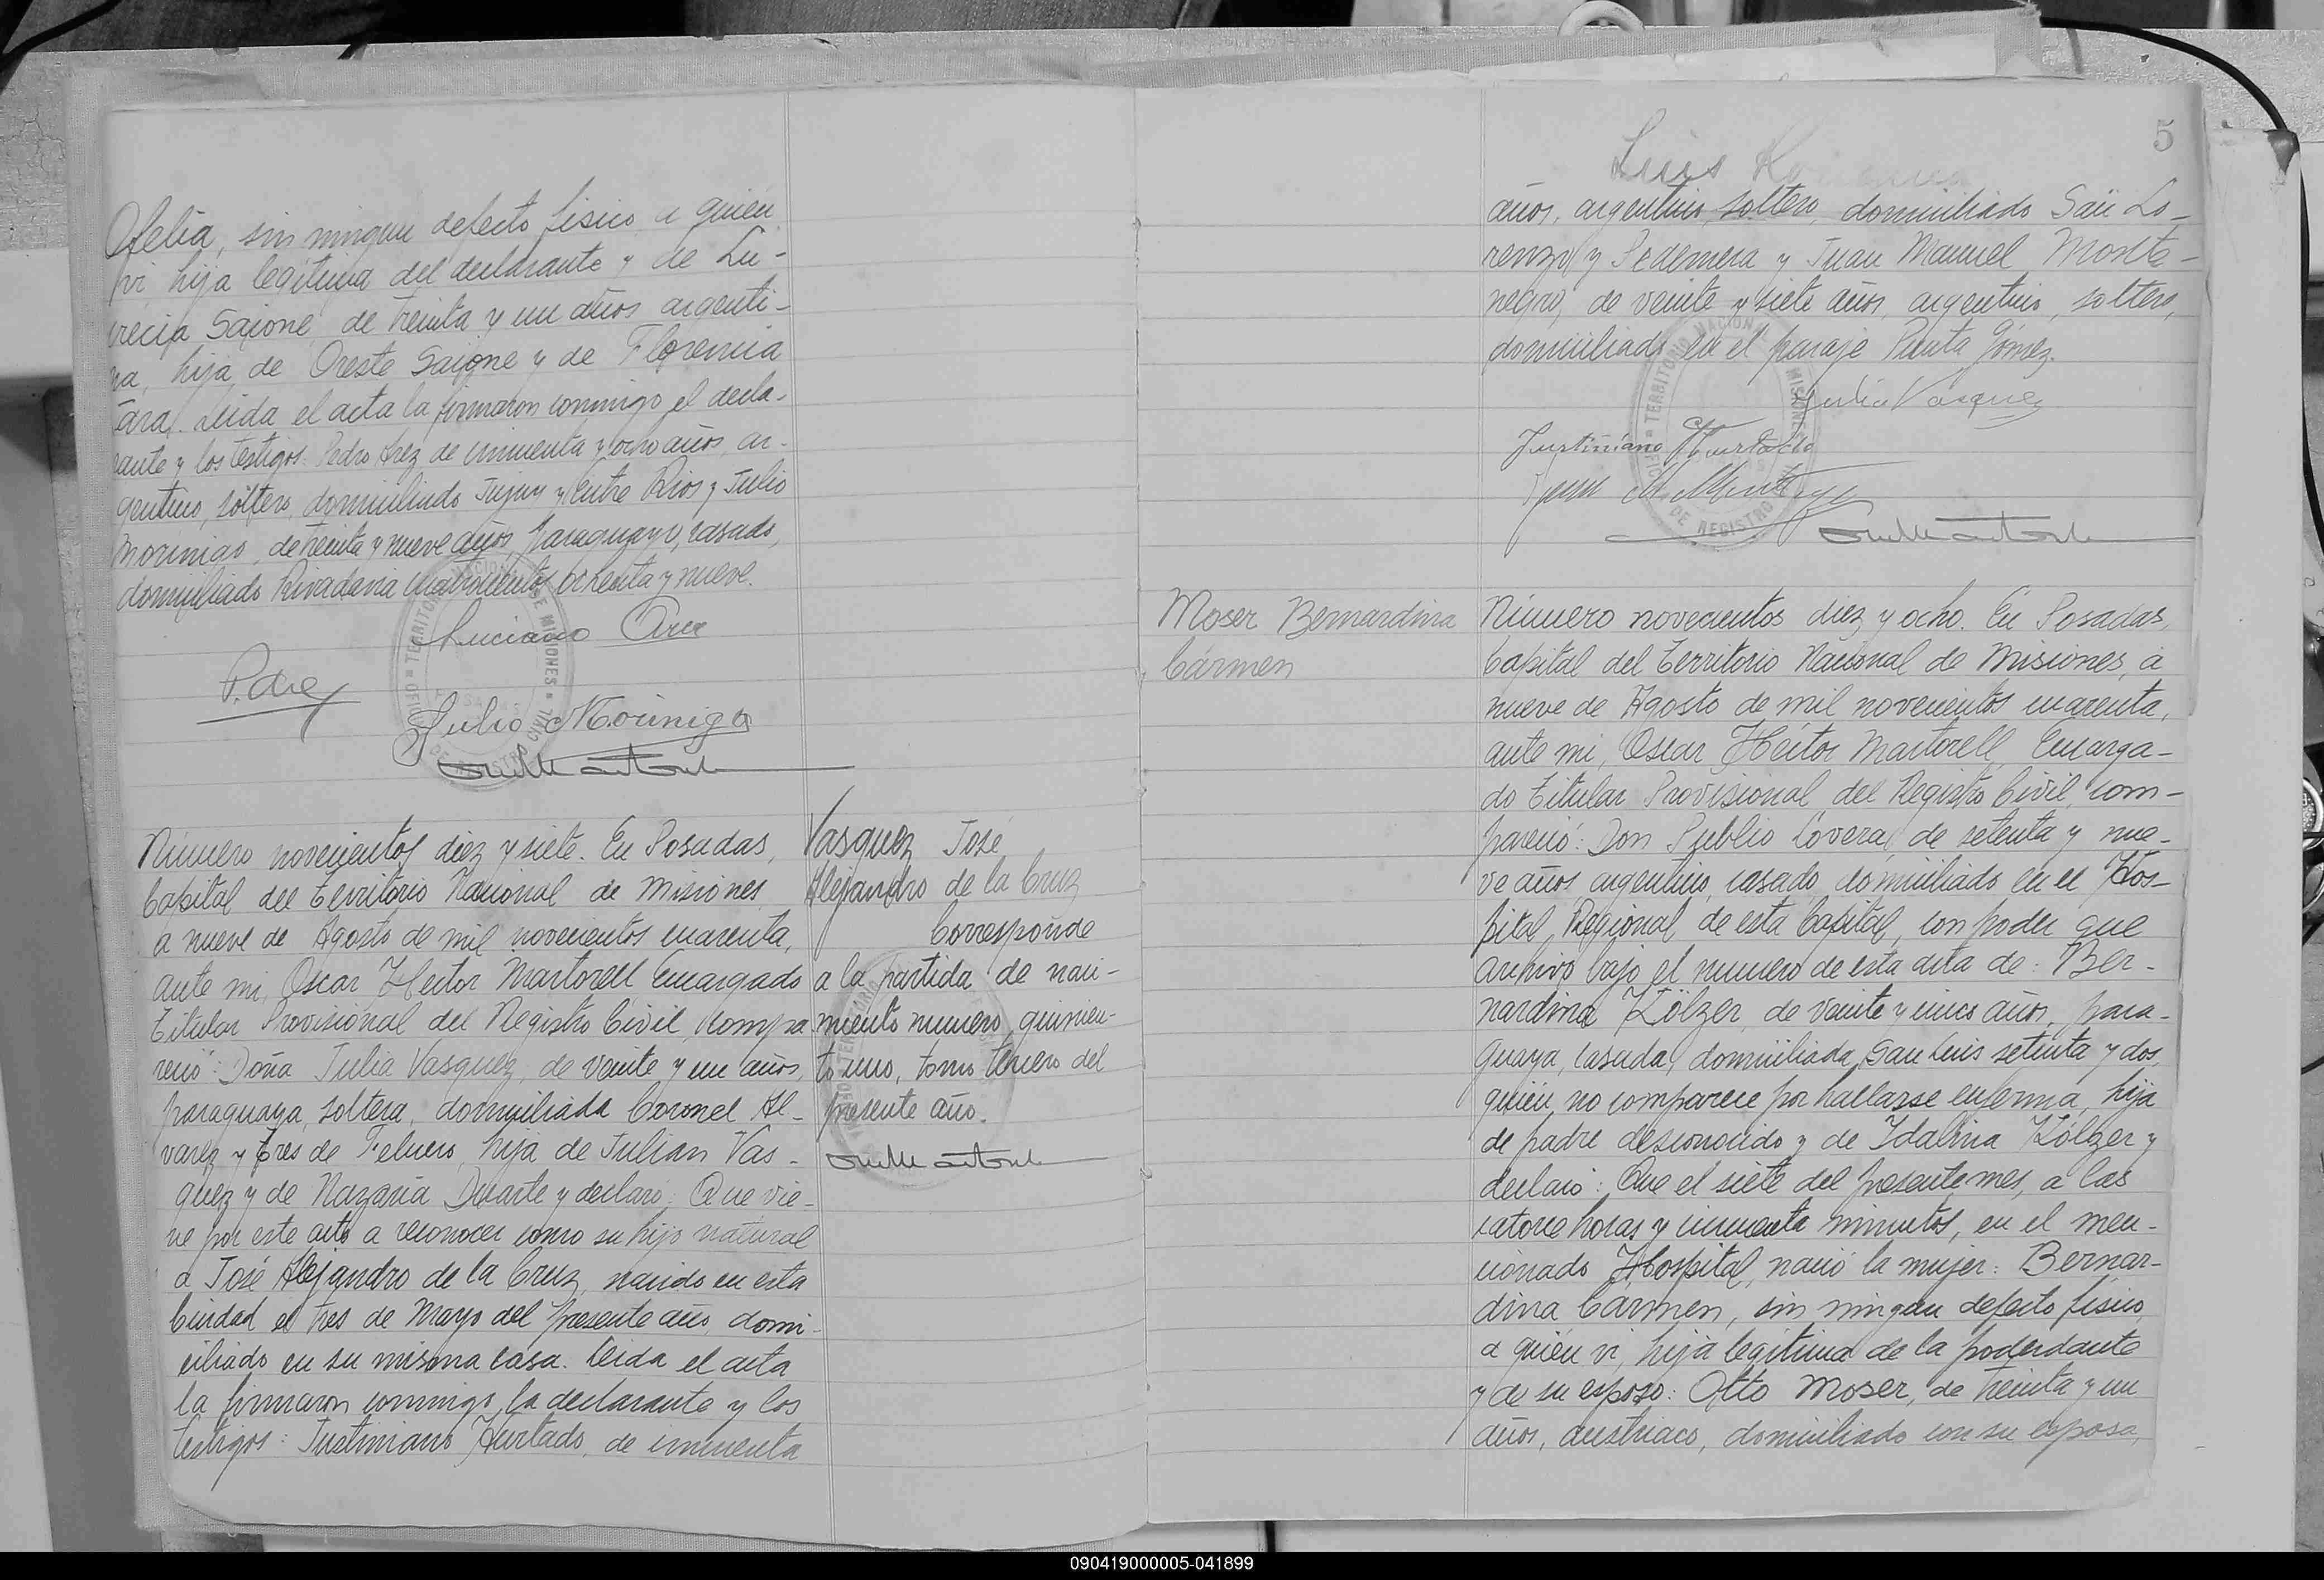 Ofelia, sin ningun defecto fisico a quien
vi, hija legitima del declarante y de Lu-
crecia Saione, de treinta y un años argenti-
na, hija de Oreste Saione y de Florencia
Leida el acta la firmaron conmigo el decla-
rante y los testigos: Pedro Arez de cincuenta y ocho años, ar-
gentino, soltero, domiciliado Jujuy y Entre Rios y Julio
Morinigo, de treinta y nueve años, paraguayo, casado,
domiciliado Rivadavia cuatrocientos ochenta y nueve.
Luciano Arce
Julio Morinigo
Número novecientos diez y siete. En Posadas,
Capital del Territorio Nacional de Misiones
a nueve de Agosto de mil novecientos cuarenta,
ante mi, Oscar Hector Martorell Encargado
Titular Provisional del Registro Civil, compa-
reció: Doña Julia Vasquez, de veinte y un años,
paraguaya, soltera, domiciliada Coronel Al-
varez y tres de Febrero, hija de Julian Vas-
quez y de Nazaria Duarte y declaró: Que vie-
ne por este acto a reconocer como su hijo natural
a José Alejandro de la Cruz, nacido en esta
Ciudad el tres de Mayo del presente año, domi-
ciliado en su misma casa. Leida el acta
la firmaron conmigo, la declarante y los
testigos: Justiniano Hurtado, de cincuenta
Vasquez José
Alejandro de la Cruz
Corresponde
a la partida de naci-
miento numero quinien-
to uno, tomo tercero del
presente año.
5
Luis
años, argentino, soltero, domiciliado San Lo-
renzo y Pedernera y Juan Manuel Monte-
negro, de veinte y siete años, argentino, soltero,
domiciliado en el paraje Punta Gómez.
Julia Vasquez
Justiniano Hurtado
Moser Bernardina
Cármen
Número novecientos diez y ocho. En Posadas,
Capital del Territorio Nacional de Misiones, a
nueve de Agosto de mil novecientos cuarenta,
ante mi, Oscar Héctor Martorell, Encarga-
do Titular Provisional del Registro Civil, com-
pareció: Don Publio Lovera, de setenta y nue-
ve años, argentino, casado, domiciliado en el Hos-
pital Regional de esta Capital, con poder que
archivo bajo el numero de esta acta de: Ber-
nardina Kölzer, de veinte y cinco años, para-
guaya, casada, domiciliada San Luis setenta y dos,
quién no comparece por hallarse enferma, hija
de padre desconocido y de Idalina Kölzer y
declaró: Que el siete del presente mes, a las
catorce horas y cincuenta minutos, en el men-
cionado Hospital, nació la mujer: Bernar-
dina Cármen, sin ningun defecto fisico,
a quién vi, hija legitima de la poderdante
y de su esposo: Otto Moser, de treinta y un
años, austriaco, domiciliado con su esposa,
090419000005-041899